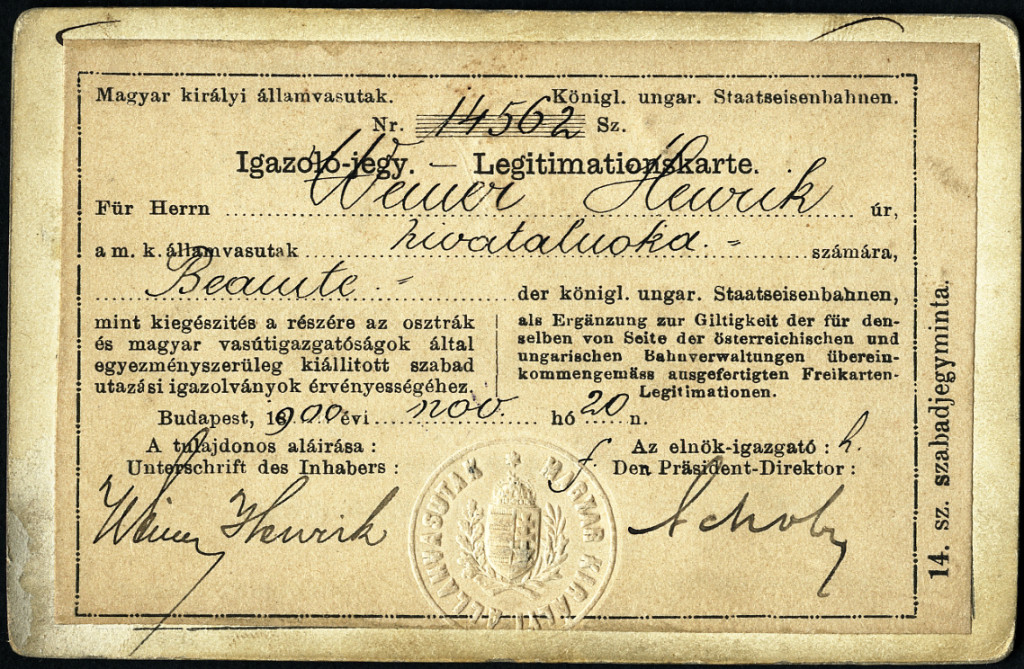 Magyar királyi államvasutak. Königl. ungar. Staatseisenbahnen.
Nr. 14562 Sz.
Igazoló-jegy. — Legitimationskarte.
Für Herrn Weiner Henrik úr,
a m. k. államvasutak hivatalnoka. számára,
Beamte der königl. ungar. Staatseisenbahnen,
mint kiegészítés a részére az osztrák
és magyar vasútigazgatóságok által
egyezményszerüleg kiállitott szabad
utazási igazolványok érvényességéhez.
als Ergänzung zur Giltigkeit der für den-
selben von Seite der österreichischen und
ungarischen Bahnverwaltungen überein-
kommengemäss ausgefertigten Freikarten-
Legitimationen.
Budapest, 1900 évi nov. hó 20 n.
A tulajdonos aláirása :
Unterschrift des Inhabers :
Weiner Henrik
Az elnök-igazgató : h.
f. Den Präsident-Direktor :
MAGYAR KIRÁLYI ÁLLAMVASUTAK
14. sz. szabadjegyminta.